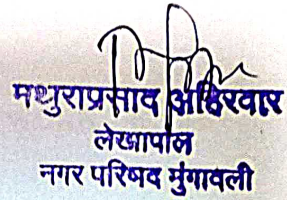 मथुराप्रसाद अहिरवार
लेखापाल
नगर परिषद मुंगावली